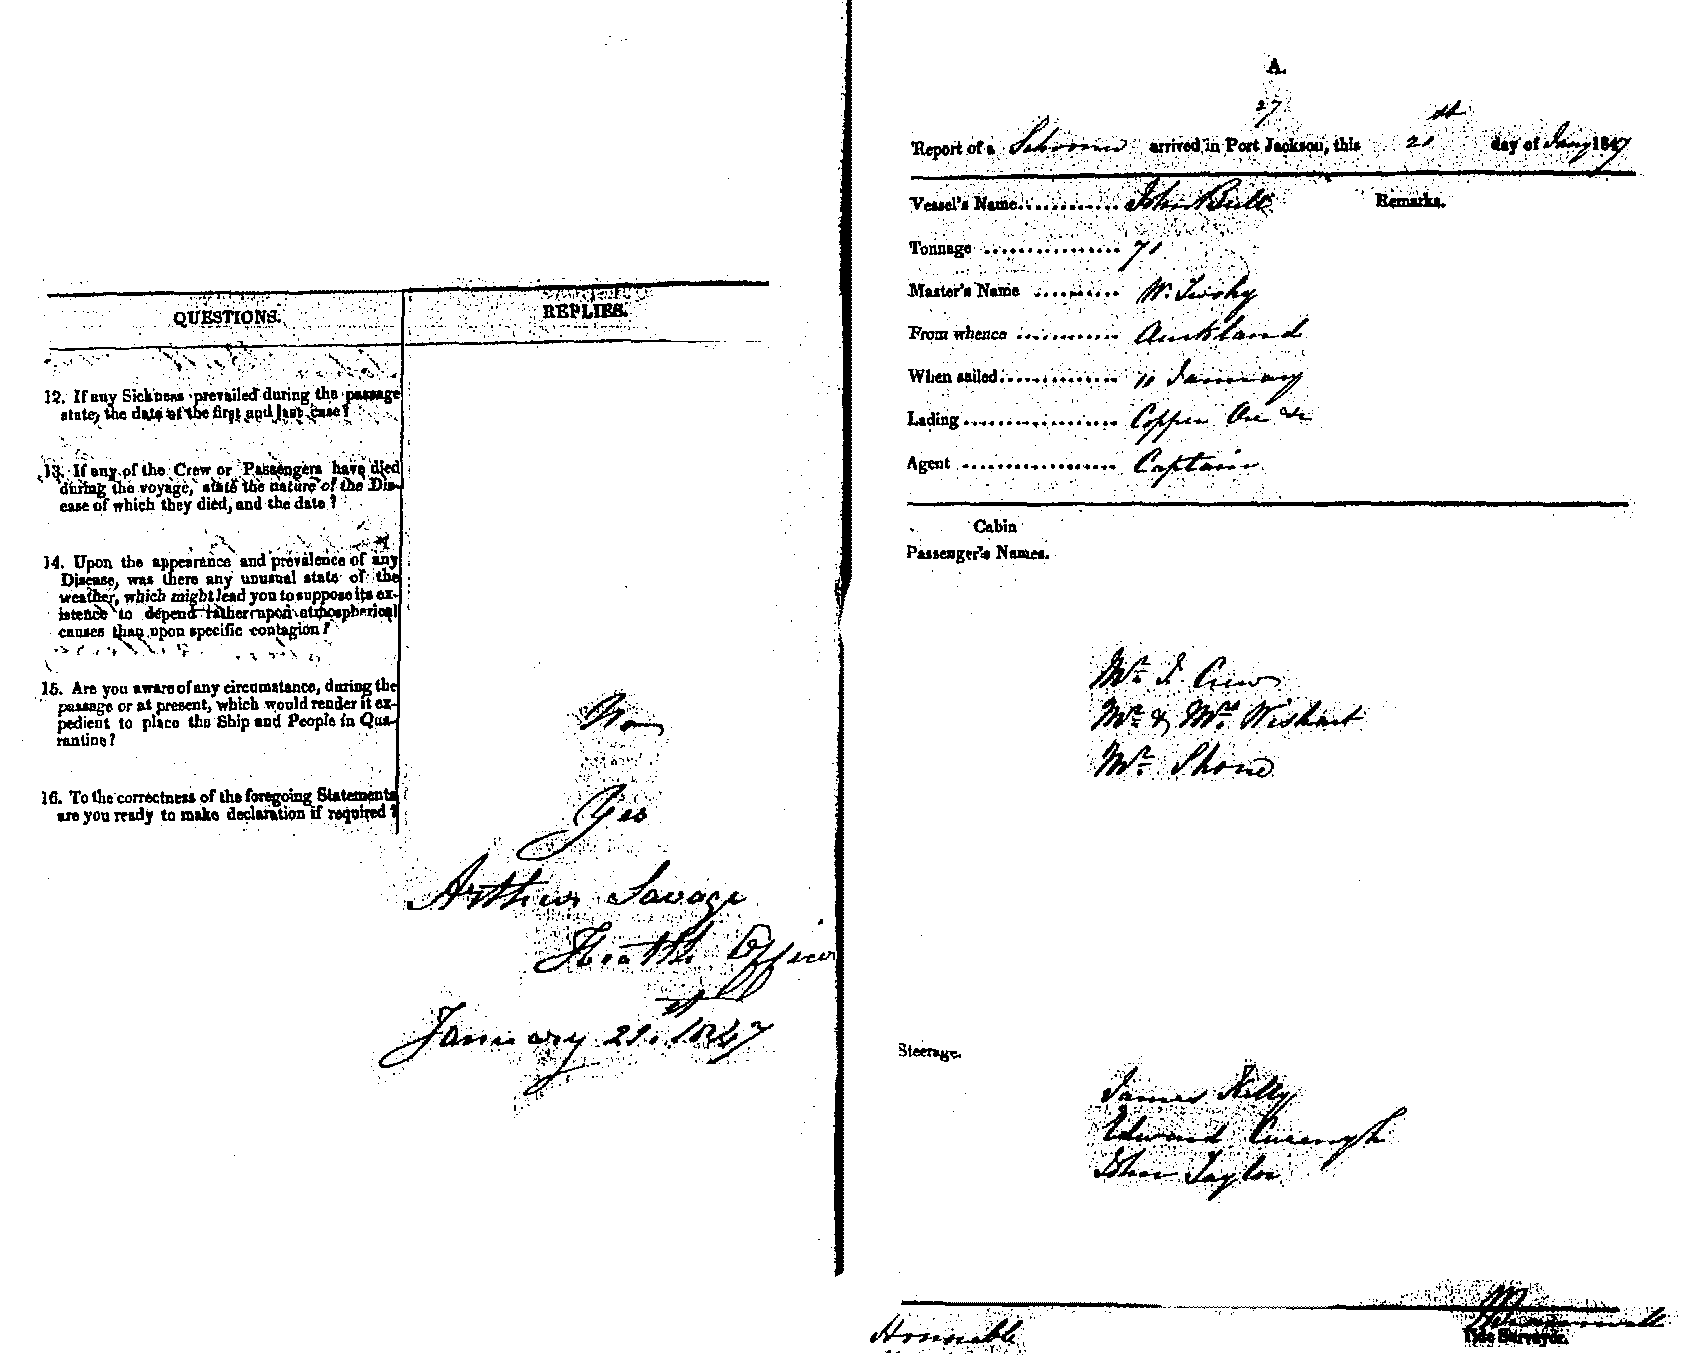 QUESTIONS.
REPLIES.
12. If any Sickness prevailed during the passage
state, the date of the first and last case?
13. If any of the Crew or Passengers have died
during the voyage, state the nature of the Dis-
ease of which they died, and the date?
14. Upon the appearance and prevalence of any
Disease, was there any unusual state of the
weather, which might lead you to suppose its ex-
istence to depend rather upon atmospherical
causes than upon specific contagion?
15. Are you aware of any circumstance, during the
passage or at present, which would render it ex-
pedient to place the Ship and People in Qua-
rantine?
16. To the correctness of the foregoing Statements
are you ready to make declaration if required?
Yes
Arthur Savage
Health Officer
January 21st 1847
A.
27
Report of a Schooner arrived in Port Jackson, this 21st day of Jany 1847
Vessel's Name John Bull
Remarks.
Tonnage 71
Master's Name W.
From whence Auckland
When sailed 11 January
Lading Copper Ore &c
Agent Captain
Cabin
Passenger's Names.
Mr. J. Crew
Mr. & Mrs. Wishart
Mr. Shone
Steerage.
James Kelly
Edward
John Taylor
Honorable
Tide Surveyor.